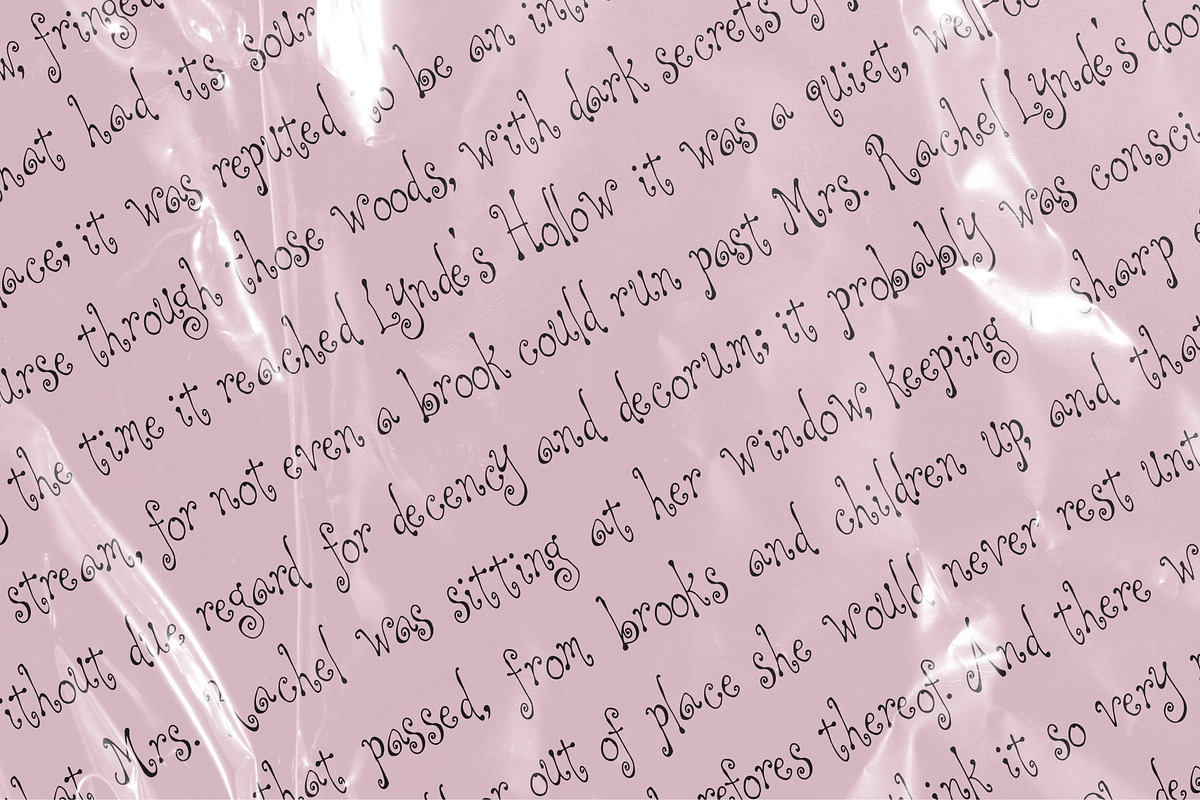 w, fringed
hat had its sour
lace; it was reputed to be an intr
urse through those woods, with dark secrets of p
y the time it reached Lynde's Hollow it was a quiet, well-co
stream, for not even a brook could run past Mrs. Rachel Lynde's door
ithout due regard for decency and decorum; it probably was consci
hat Mrs. Rachel was sitting at her window, keeping sharp e
that passed, from brooks and children up, and that
or out of place she would never rest unt
refores thereof. And there w
ink it so very